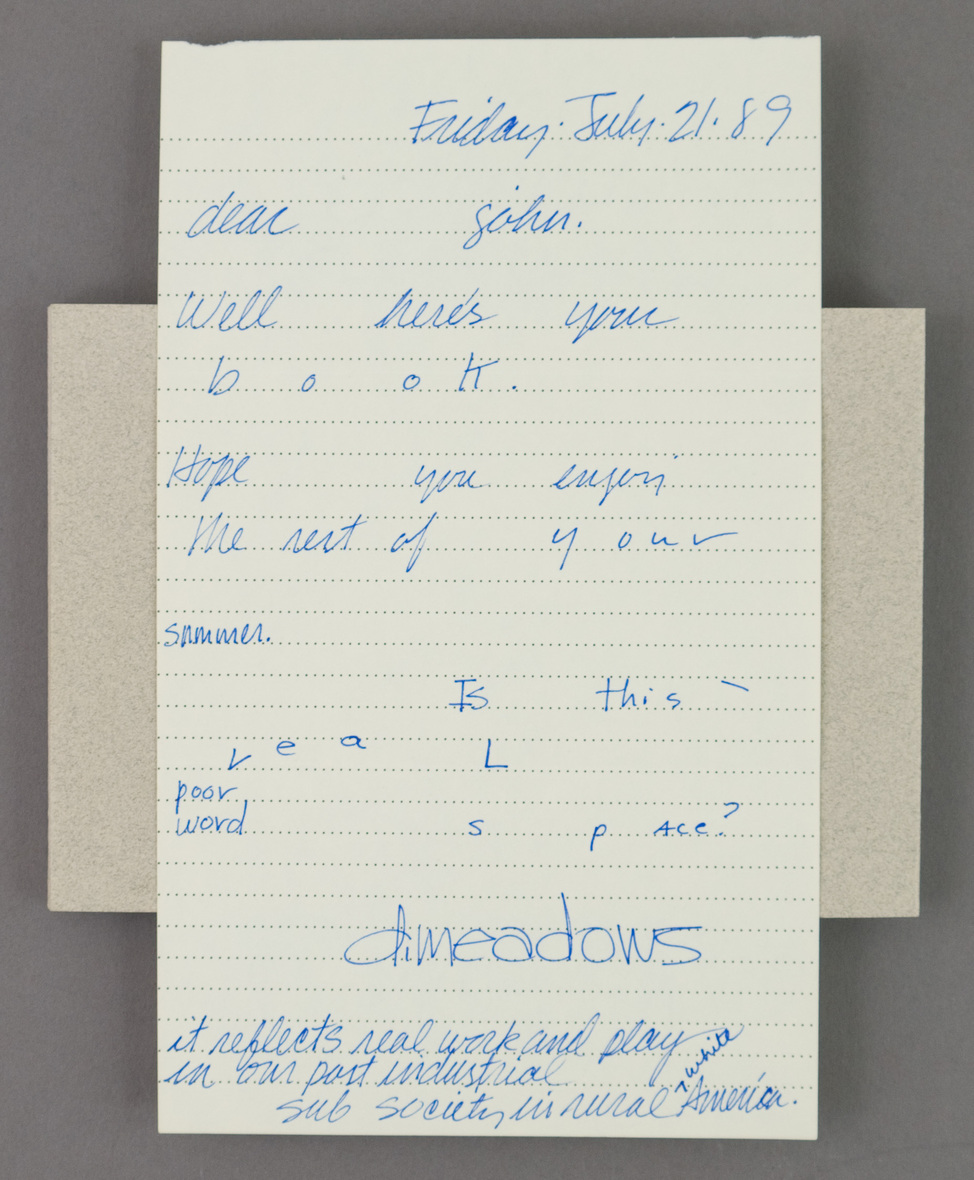 Friday. July. 21. 89
dear john.
Well here's your
b o o k.
Hope you enjoy
the rest of y o u r
summer.
Is this
r e a L
poor
word s p Ace?
dimeadows
it reflects real work and play
in our post industrial
sub society in rural ? white America.